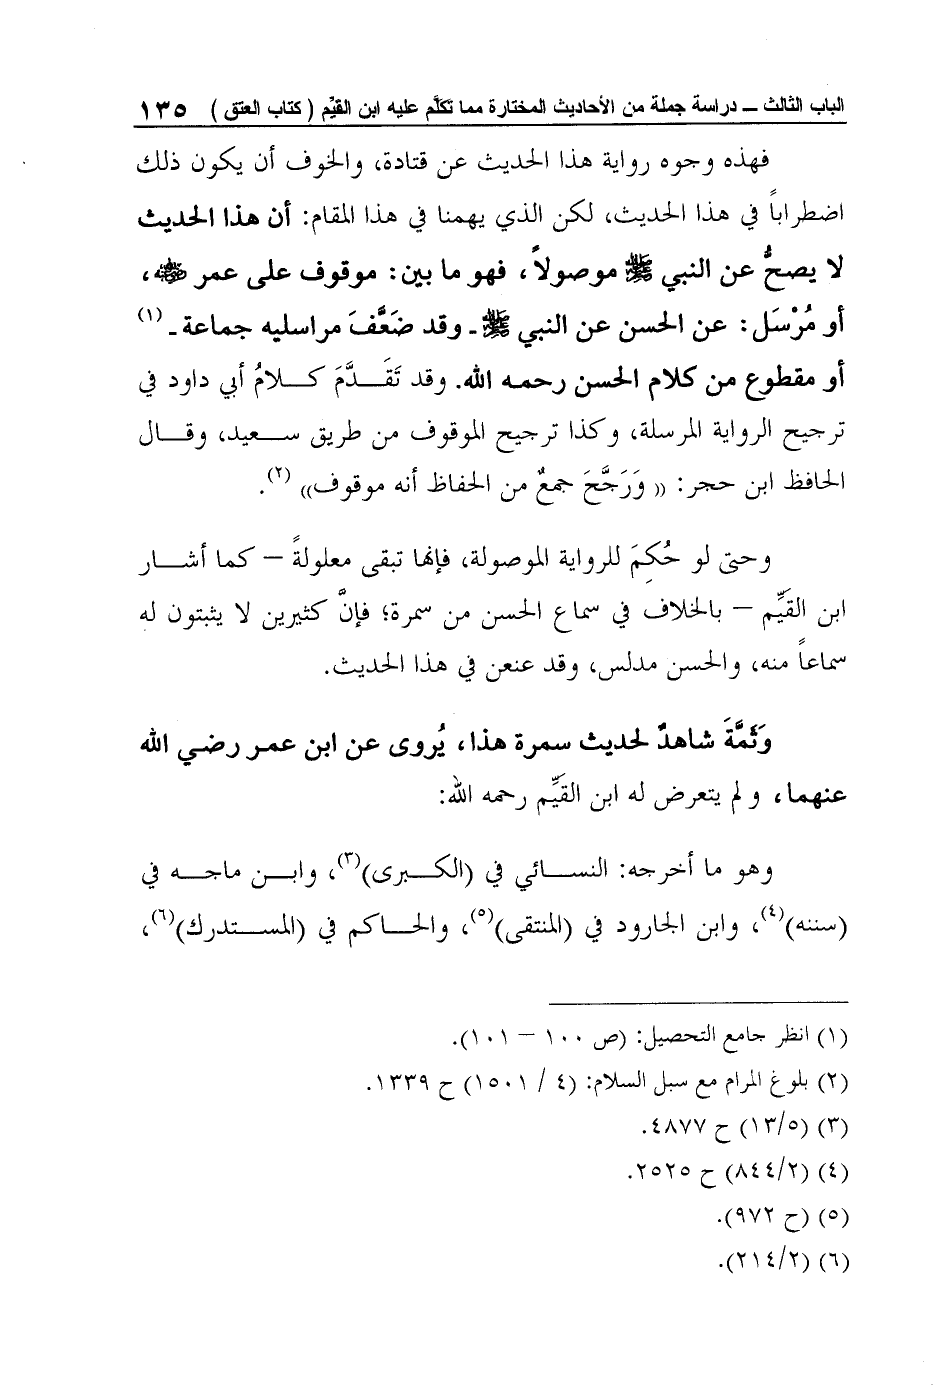 الباب الثالث ــ دراسة جملة من الأحاديث المختارة مما تكلَّم عليه ابن القيِّم ( كتاب العتق ) ١٣٥
فهذه وجوه رواية هذا الحديث عن قتادة، والخوف أن يكون ذلك
اضطراباً في هذا الحديث، لكن الذي يهمنا في هذا المقام: أن هذا الحديث
لا يصحُّ عن النبي ﷺ موصولاً، فهو ما بين: موقوف على عمر رضي الله عنه،
أو مُرْسَل: عن الحسن عن النبي ﷺ ـ وقد ضَعَّفَ مراسليه جماعة ـ (١)
أو مقطوع من كلام الحسن رحمه الله. وقد تَقَــدَّمَ كــلامُ أبي داود في
ترجيح الرواية المرسلة، وكذا ترجيح الموقوف من طريق ســعيد، وقــال
الحافظ ابن حجر: (( وَرَجَّحَ جمعٌ من الحفاظ أنه موقوف)) (٢).
وحتى لو حُكِمَ للرواية الموصولة، فإنها تبقى معلولةً – كما أشــار
ابن القيِّم – بالخلاف في سماع الحسن من سمرة؛ فإنَّ كثيرين لا يثبتون له
سماعاً منه، والحسن مدلس، وقد عنعن في هذا الحديث.
وَثَمَّةَ شاهدٌ لحديث سمرة هذا، يُروى عن ابن عمر رضي الله
عنهما، و لم يتعرض له ابن القيِّم رحمه الله:
وهو ما أخرجه: النســائي في (الكــبرى)(٣)، وابــن ماجــه في
(سننه)(٤)، وابن الجارود في (المنتقى)(٥)، والحــاكم في (المســتدرك)(٦)،
(١) انظر جامع التحصيل: (ص ١٠٠ – ١٠١).
(٢) بلوغ المرام مع سبل السلام: (٤ / ١٥٠١) ح ١٣٣٩.
(٣) (١٣/٥) ح ٤٨٧٧.
(٤) (٨٤٤/٢) ح ٢٥٢٥.
(٥) (ح ٩٧٢).
(٦) (٢١٤/٢).